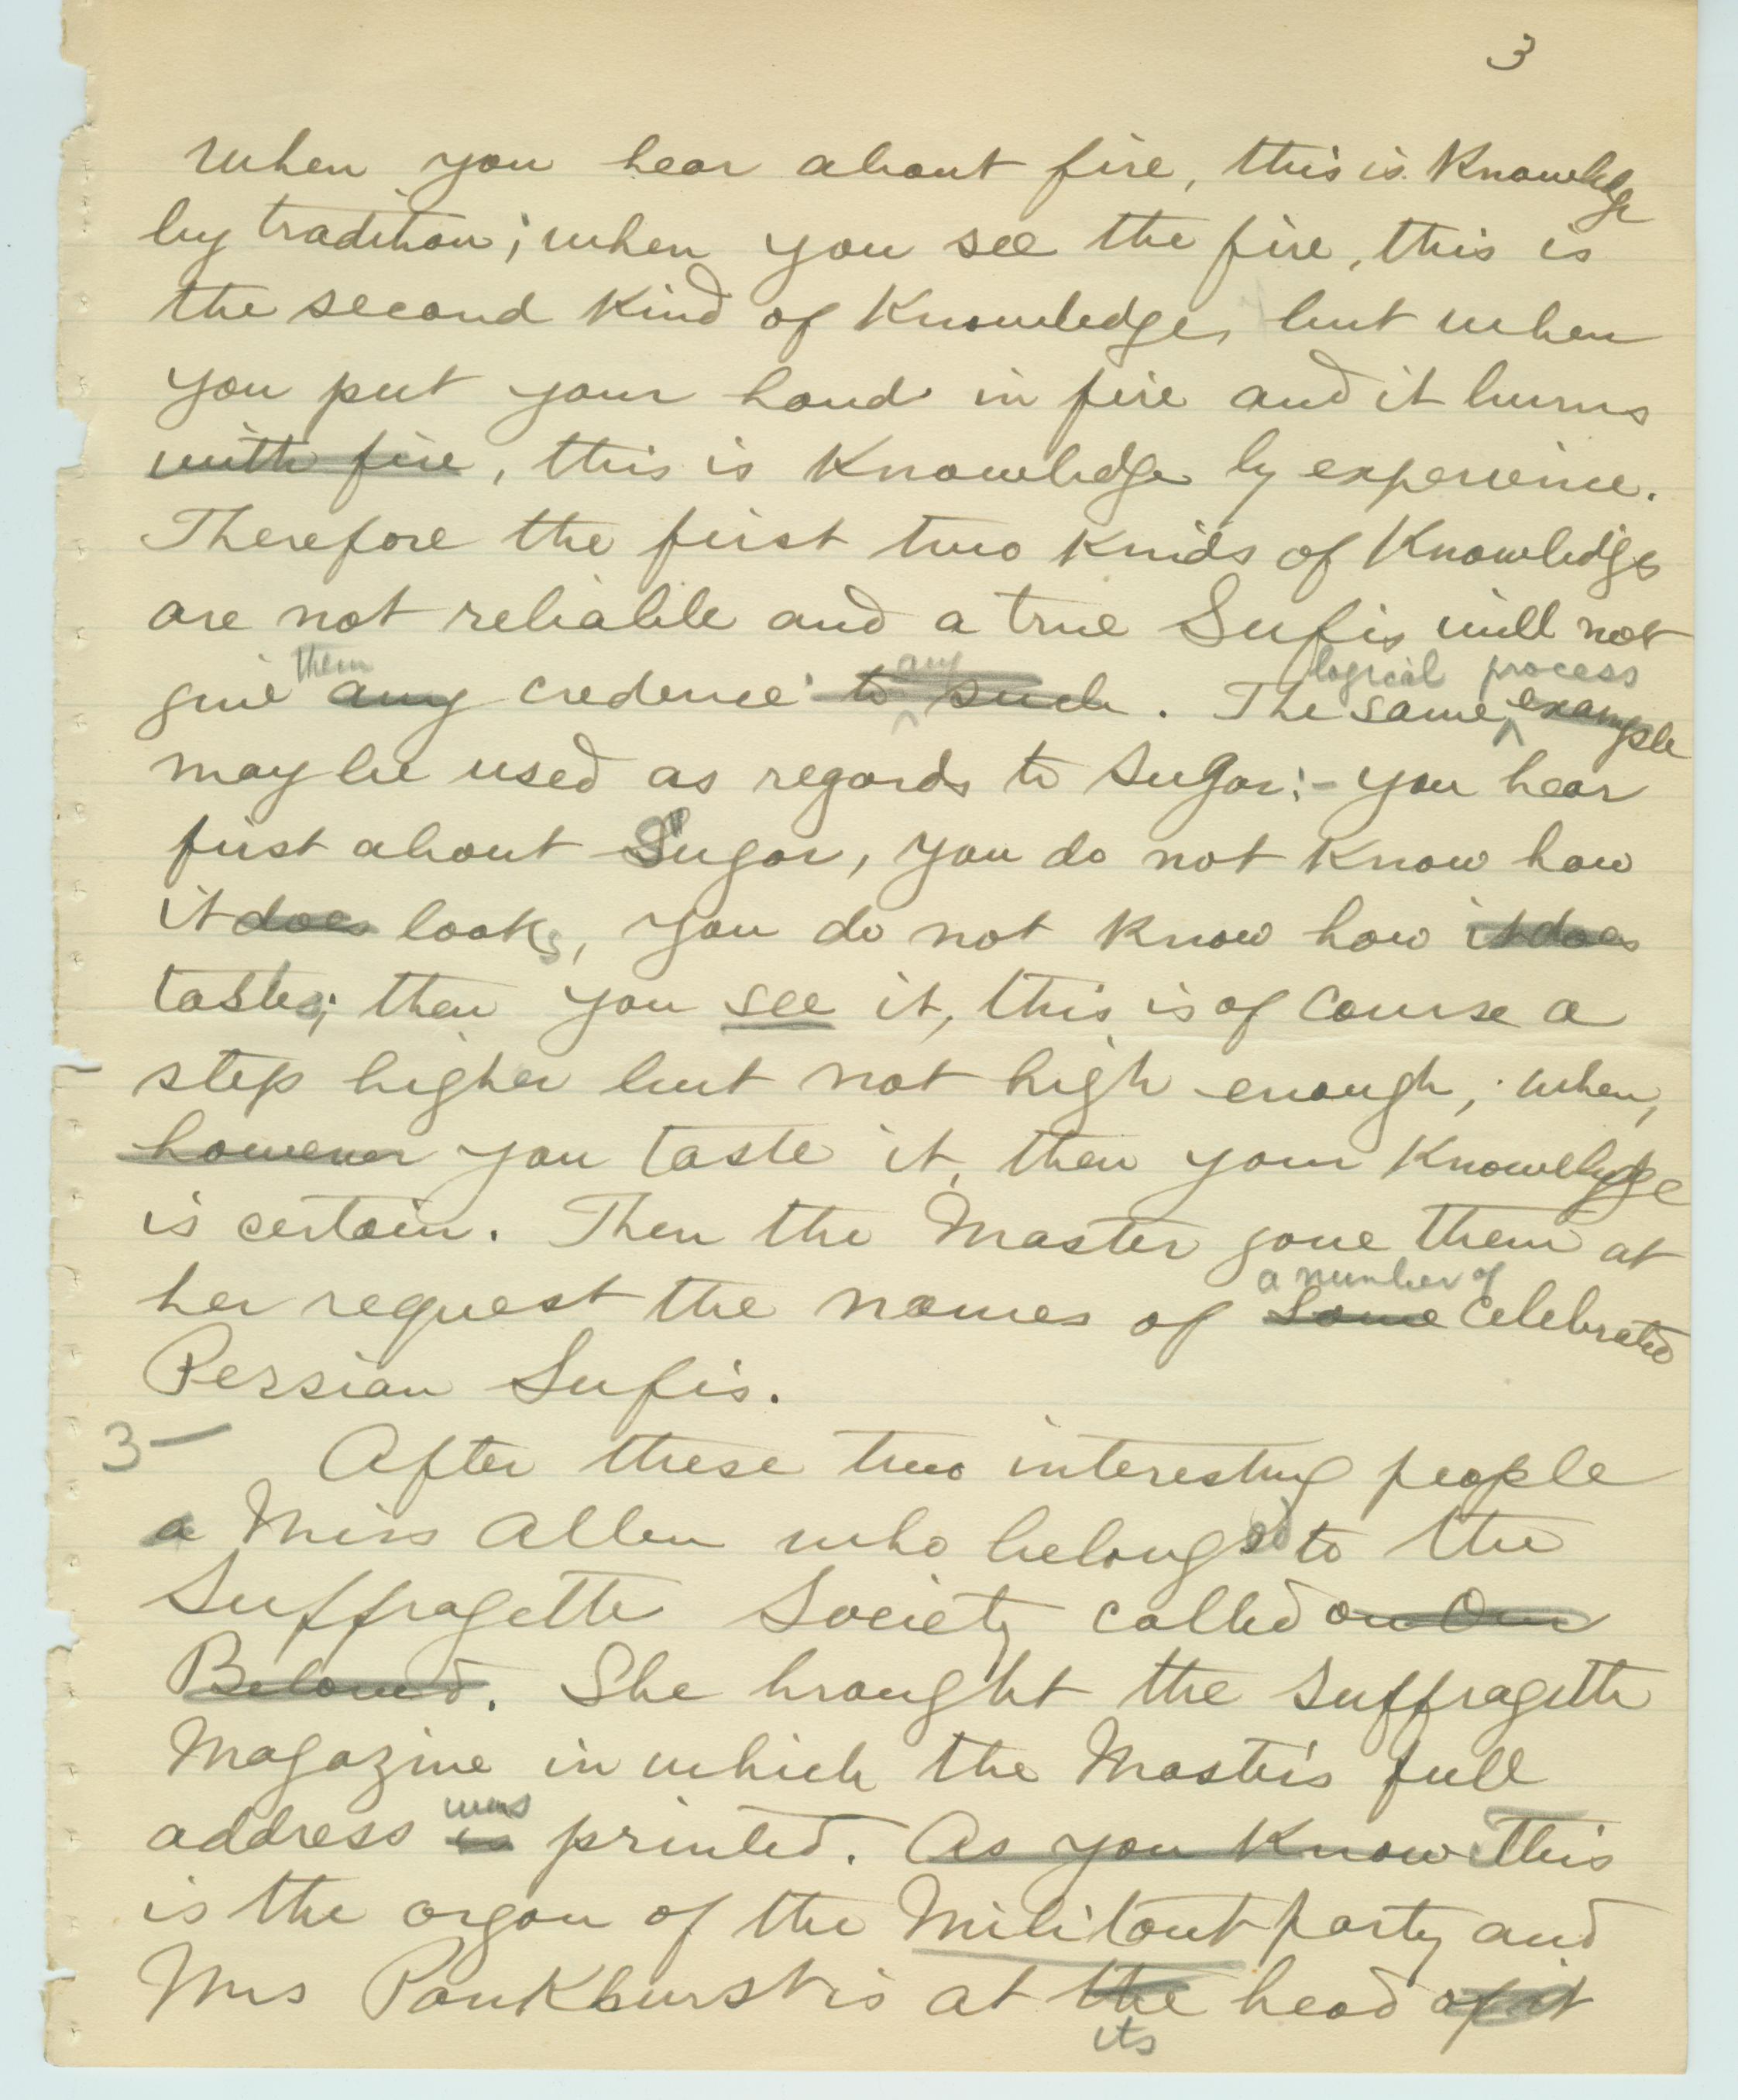 3
When you hear about fire, this is Knowledge
by tradition; when you see the fire, this is
the second kind of Knowledge, but when
you put your hand in fire and it burns
with fire, this is Knowledge by experience.
Therefore the first two kinds of Knowledge
are not reliable and a true Sufis will not
them any logical process
give any credence to such. The same example
may be used as regards to Sugar:- you hear
first about Sugar, you do not know how
it does looks, you do not know how it does
tastes; then you see it, this is of course a
step higher but not high enough; when,
however you taste it, then your Knowledge
is certain. Then the Master gave them at
a number of
her request the names of some celebrated
Persian Sufis.
3- After these two interesting people
a Miss Allen who belonged to the
Suffragette Society called on Our
Beloved. She brought the Suffragette
Magazine in which the Master's full
was
address is printed. As you know This
is the organ of the Militant party and
Mrs Pankhurst is at the head of it
its